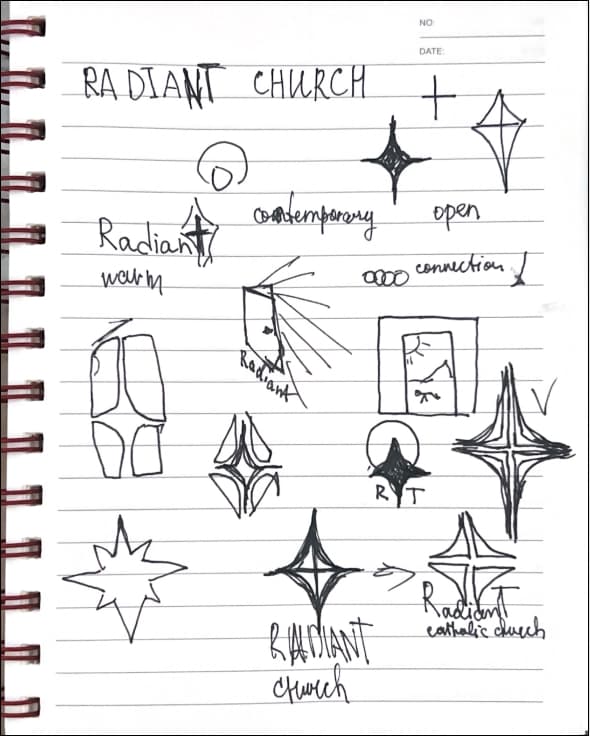 NO:
DATE:
RADIANT CHURCH
contemporary
open
Radiant
warm
connection
Radiant
R T
Radiant
catholic church
RADIANT
church